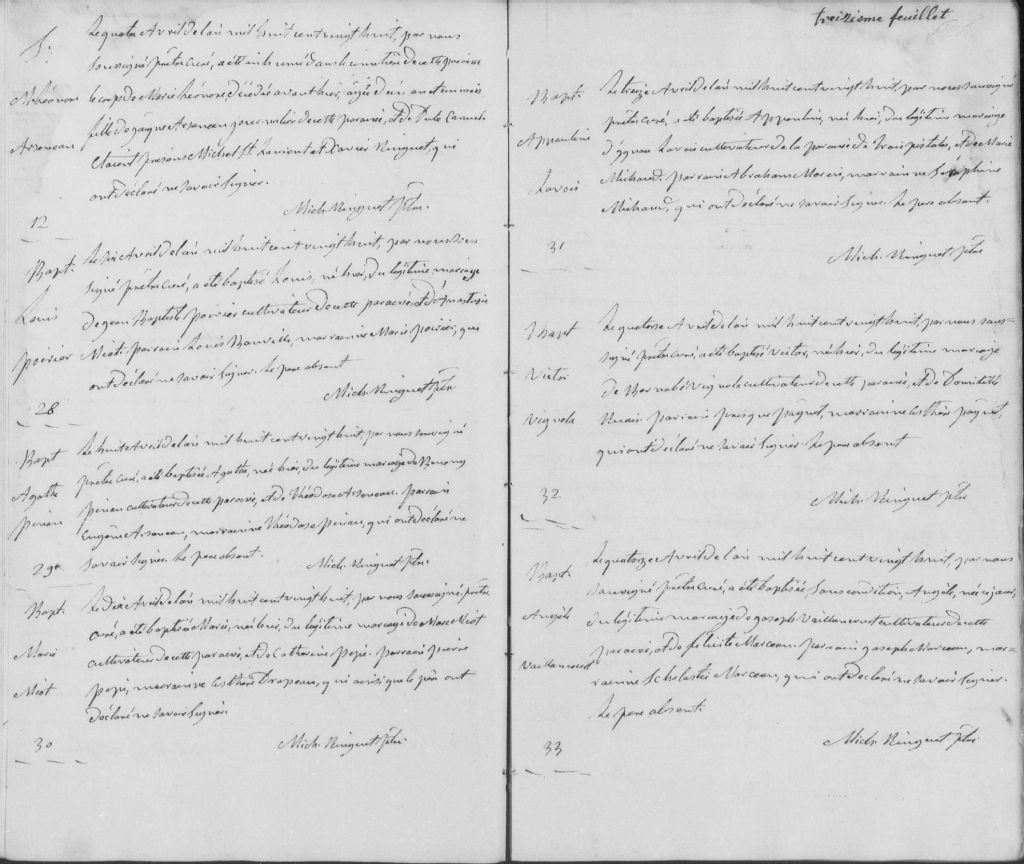 S.
M. Léonore
Arseneau
12
Le quatre Avril de l'an mil huit cent vingt huit, par nous
soussigné prêtre curé, a été inhumé dans le cimetière de cette paroisse
le corps de Marie Léonore, décédée avant hier, âgée d'un an et un mois
fille de Arseneau journalier de cette paroisse, et de
Etaient présens Michel St Laurent et Xavier Ringuet, qui
ont déclaré ne savoir signer.
Mich. Ringuet ptre
Bapt.
Louis
poirier
28
Le six Avril de l'an mil huit cent vingt huit, par nous sous
signé prêtre curé, a été baptisé Louis, né hier, du légitime mariage
de jean Baptiste poirier cultivateur de cette paroisse, et d'Anastasie
Miot. parrain Louis Banville, marrainne Marie poirier, qui
ont déclaré ne savoir signer. Le pere absent
Mich. Ringuet ptre
Bapt
Agathe
pinau
29e
Le huit Avril de l'an mil huit cent vingt huit, par nous soussigné
prêtre curé, a été baptisée Agathe, née hier, du légitime mariage de Benony
pinau cultivateur de cette paroisse, et de Théodose Arseneau. parrain
Eugène Arseneau, marrainne Théodose pinau, qui ont déclaré ne
savoir signer. Le pere absent.
Mich. Ringuet ptre
Bapt.
Marie
Miot
30
Le dix Avril de l'an mil huit cent vingt huit, par nous soussigné, prêtre
curé, a été baptisée Marie, née hier, du légitime mariage de Marc Miot
cultivateur de cette paroisse, et de Catherine pepi. parrain pierre
pepi, marrainne Esther Drapeau, qui ainsi que le père ont
déclaré ne savoir signer.
Mich. Ringuet ptre
treizieme feuillet
Bapt.
Appauline
Lavoie
31
Le treize Avril de l'an mil huit cent vingt huit, par nous soussigné
prêtre curé, a été baptisée Appauline, née hier, du légitime mariage
d'ygnace Lavoie cultivateur de la paroisse de Trois pistoles, et de Marie
Michaud. parrain Abraham Morin, marrainne Séraphine
Michaud, qui ont déclaré ne savoir signer. Le pere absent.
Mich. Ringuet ptre
Bapt
Victor
Vignola
32
Le quatorze Avril de l'an mil huit cent vingt huit, par nous sous=
signé prêtre curé, a été baptisé Victor, né hier, du légitime mariage
de Barnabé Vignola cultivateur de cette paroisse, et de Domitille
parrain paquet, marrainne Esther paquet,
qui ont déclaré ne savoir signer. Le pere absent
Mich. Ringuet ptre
Bapt.
Angèle
Vaillancourt
33
Le quatorze Avril de l'an mil huit cent vingt huit, par nous
soussigné prêtre curé, a été baptisée sous condition, Angèle, née ce jour,
du légitime mariage de joseph Vaillancourt cultivateur de cette
paroisse, et de félicité Marceau. parrain joseph Marceau, mar=
rainne Scholastie Marceau, qui ont déclaré ne savoir signer.
Le pere absent.
Mich. Ringuet ptre